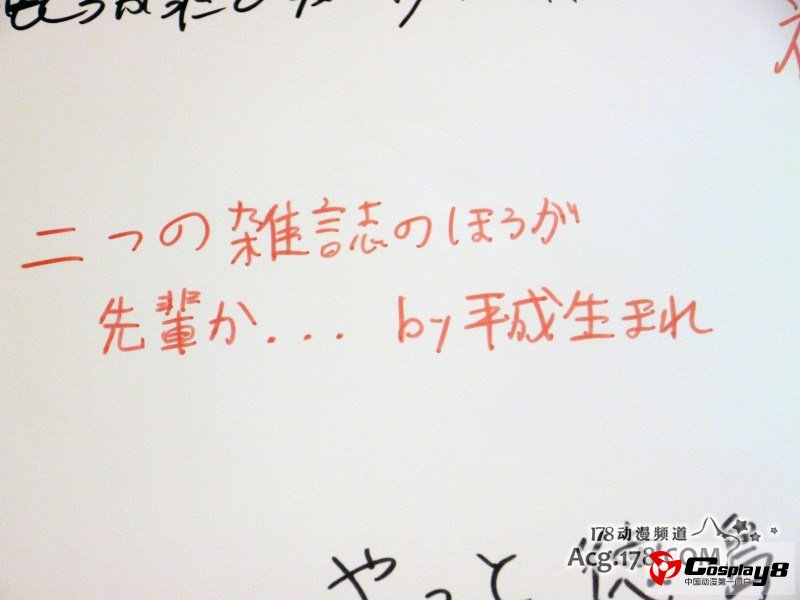 二つの雑誌のほうが
先輩か... by 平成生まれ
やっと
178动漫频道
Acg.178.COM
Cosplay8
中国动漫第一门户